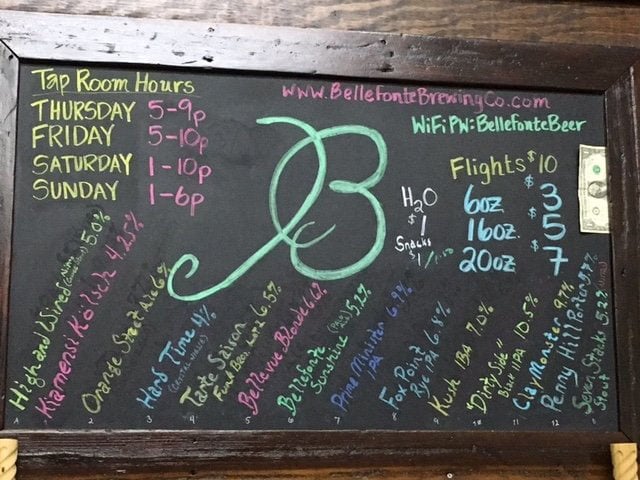 Tap Room Hours
THURSDAY 5-9p
FRIDAY 5-10p
SATURDAY 1-10p
SUNDAY 1-6p
www.BellefonteBrewingCo.com
WiFi PW: BellefonteBeer
B
Flights $10
H2O $1
Snacks
6oz $3
16oz $5
20oz $7
High and Wired 5.0%
Kiamensi Kölsch 4.25%
Orange Street Ale 6%
Hard Time 4%
Tarte Saison 6.5%
Bellevue Blonde 6.6%
Bellefonte Sunshine 5.2%
Prime Minister IPA 6.9%
Fox Point Rye IPA 6.8%
Kush IBA 7.0%
"Dirty Side" 10.5%
Clay Monster 9%
Penny Hill Porter
Seven Stacks Stout 5.2%
1 2 3 4 5 6 7 8 9 10 11 12